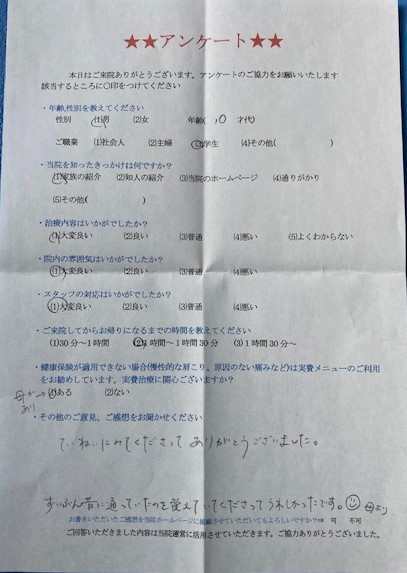 ★★アンケート★★
本日はご来院ありがとうございます。アンケートのご協力をお願いいたします
該当するところに〇印をつけてください
・年齢,性別を教えてください
性別 (1)男 (2)女 年齢( 10 才代)
ご職業 (1)社会人 (2)主婦 (3)学生 (4)その他( )
・当院を知ったきっかけは何ですか？
(1)家族の紹介 (2)知人の紹介 (3)当院のホームページ (4)通りがかり
(5)その他( )
・治療内容はいかがでしたか？
(1)大変良い (2)良い (3)普通 (4)悪い (5)よくわからない
・院内の雰囲気はいかがでしたか？
(1)大変良い (2)良い (3)普通 (4)悪い
・スタッフの対応はいかがでしたか？
(1)大変良い (2)良い (3)普通 (4)悪い
・ご来院してからお帰りになるまでの時間を教えてください
(1)30分～1時間 (2)1時間～1時間30分 (3)1時間30分～
・健康保険が適用できない場合(慢性的な肩こり、原因のない痛みなど)は実費メニューのご利用
をお勧めしています。実費治療に関心ございますか？
母が→ (1)ある (2)ない
あり
・その他のご意見、ご感想をお聞かせください
ていねいにみてくださって ありがとうございました。
ずいぶん昔に通っていたのを覚えていてくださってうれしかったです。 母より
お書きいただいたご感想を当院ホームページに掲載させていただいてもよろしいですか？⇒ 可 不可
ご回答いただきました内容は当院運営に活用させていただきます。ご協力ありがとうございました。